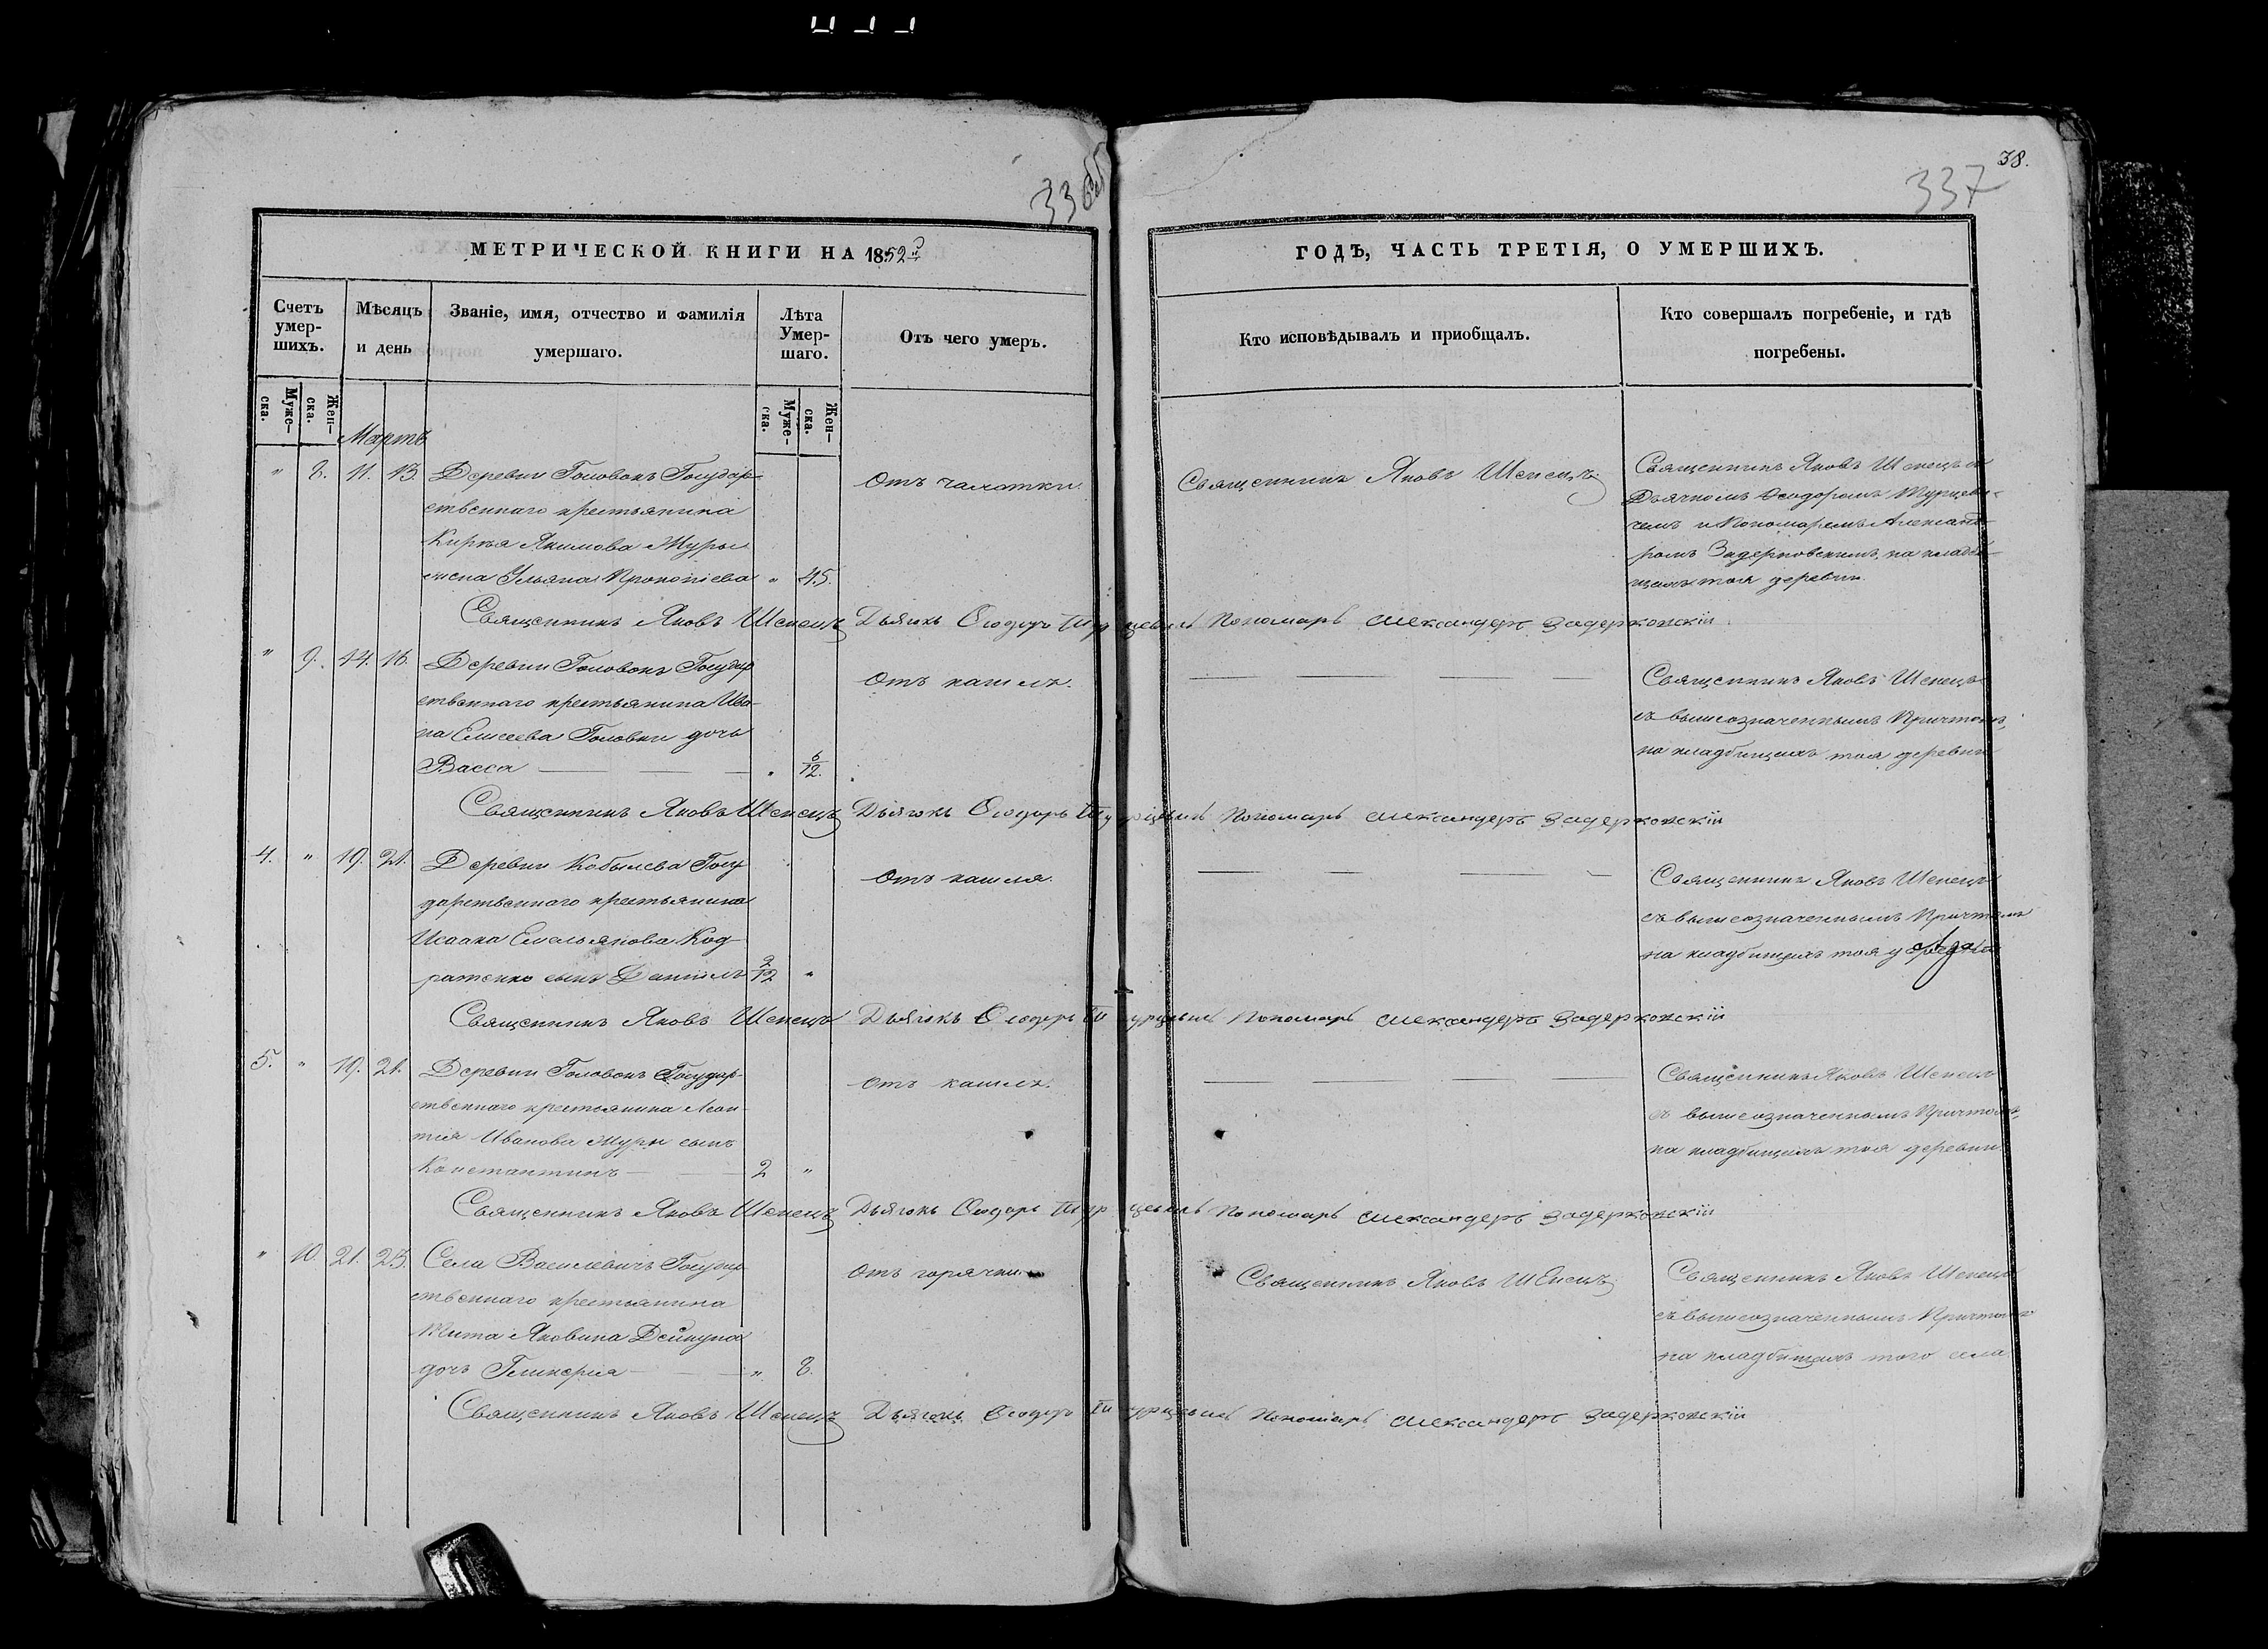 336 об
38.
337
МЕТРИЧЕСКОЙ КНИГИ НА 1852й
ГОДЪ, ЧАСТЬ ТРЕТІЯ, О УМЕРШИХЪ.
Счетъ умер-шихъ.
Мѣсяцъ и день
Званіе, имя, отчество и фамилія умершаго.
Лѣта Умер-шаго.
Отъ чего умеръ.
Кто исповѣдывалъ и приобщалъ.
Кто совершалъ погребеніе, и гдѣ погребены.
Муже-ска.
Жен-ска.
Муже-ска.
Жен-ска.
Мартъ
" 8. 11. 13. Деревни Головокъ Государ-
ственнаго крестьянина
Кирѣя Якимова Журы
жена Ульяна Прокопіева " 45.
Отъ чахотки.
Священникъ Яковъ Шепецъ
Священникъ Яковъ Шепецъ съ
Дьячкомъ Ѳеодоромъ
чемъ и Пономаремъ Александ-
ромъ Задерковскимъ, на кладби-
щахъ тоя деревни.
Священникъ Яковъ Шепецъ Дьячокъ Ѳеодоръ Пономарь Александеръ Задерковскій
" 9. 14. 16. Деревни Головокъ Государ
ственнаго крестьянина Ива-
на Елисеева Головки дочь
Васса " 6/12.
Отъ кашля.
Священникъ Яковъ Шепецъ
съ вышеозначеннымъ Причтомъ,
на кладбищахъ тоя деревни
Священникъ Яковъ Шепецъ Дьячокъ Ѳеодоръ Пономарь Александеръ Задерковскій
4. " 19. 21. Деревни Кобылева Госу
дарственнаго крестьянина
Исаака Емельянова Код-
ратенко сынъ Даніилъ "
Отъ кашля.
Священникъ Яковъ Шепецъ
съ вышеозначеннымъ Причтомъ
на кладбищахъ тоя
Священникъ Яковъ Шепецъ Дьячокъ Ѳеодоръ Пономарь Александеръ Задерковскій
5. " 19. 21. Деревни Головокъ Государ-
ственнаго крестьянина Леон-
тія Иванова Журы сынъ
Константинъ 2 "
Отъ кашля.
Священникъ Яковъ Шепецъ
съ вышеозначеннымъ Причтомъ,
на кладбищахъ тоя деревни.
Священникъ Яковъ Шепецъ Дьячокъ Ѳеодоръ Пономарь Александеръ Задерковскій
" 10. 21. 23. Села Василевичъ Государ
ственнаго крестьянина
Тита Яковина Дейкуна
дочь Гликерия " 8.
Отъ горячки.
Священникъ Яковъ Шепецъ
Священникъ Яковъ Шепецъ
съ вышеозначеннымъ Причтомъ
на кладбищахъ того села
Священникъ Яковъ Шепецъ Дьячокъ Ѳеодоръ Пономарь Александеръ Задерковскій